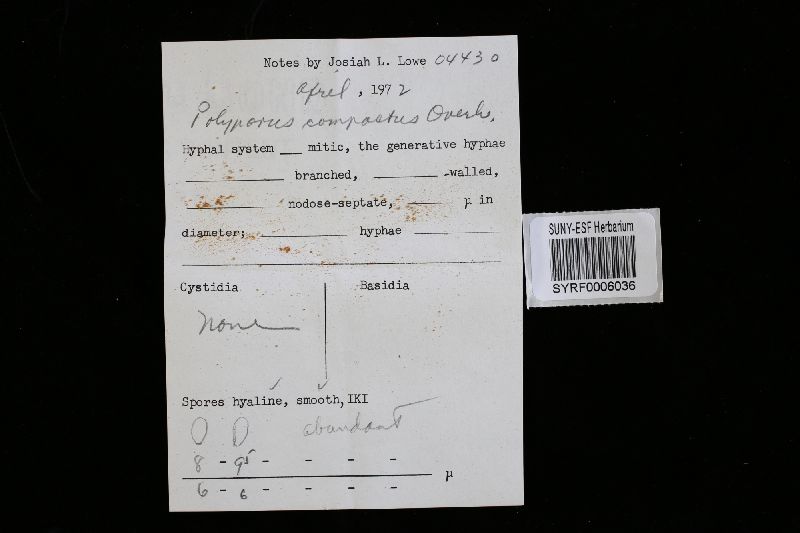 Notes by Josiah L. Lowe 04430
April, 1972
Polyporus compactus Overh.
Hyphal system ___ mitic, the generative hyphae
___ branched, ___ -walled,
___ nodose-septate, ___ µ in
diameter; ___ hyphae ___
Cystidia Basidia
none
Spores hyaline, smooth, IKI
abundant
8 - 95 - - - -
µ
6 - 6 - - - -
SUNY-ESF Herbarium
SYRF0006036